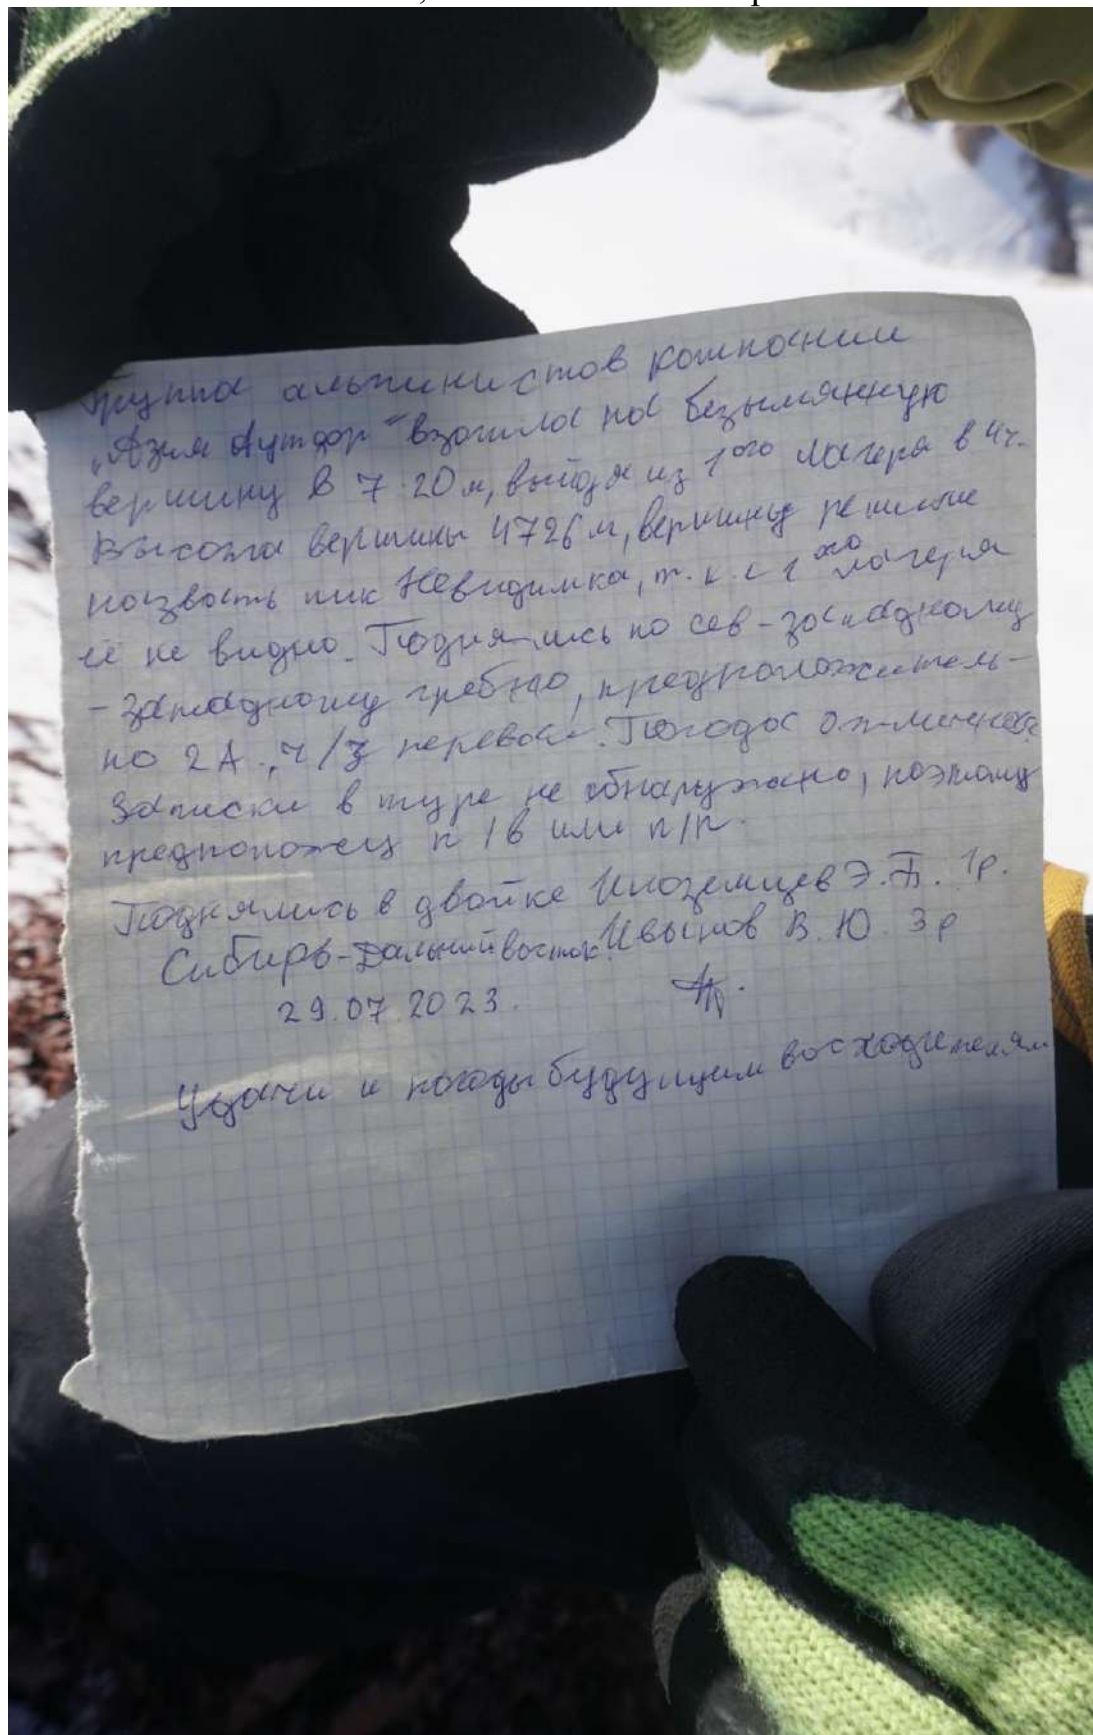 Группа альпинистов компании
„Азия Аутдор" взошла на безымянную
вершину в 7 20 м, выйдя из 1ого лагеря в 4ч.
Высота вершины 4726 м, вершину решили
назвать пик Невидимка, т.к. с 1ого лагеря
её не видно. Поднялись по сев-западному
-западному гребню, предположитель-
но 2А., ч/з перевал. Погода отличная.
Записки в туре не обнаружено, поэтому
п/в или п/п.
Поднялись в двойке Иноземцев Э.П. 1р.
Сибирь-Дальний восток. В.Ю. 3р
29.07.2023.
Удачи и погоды будущим восходителям